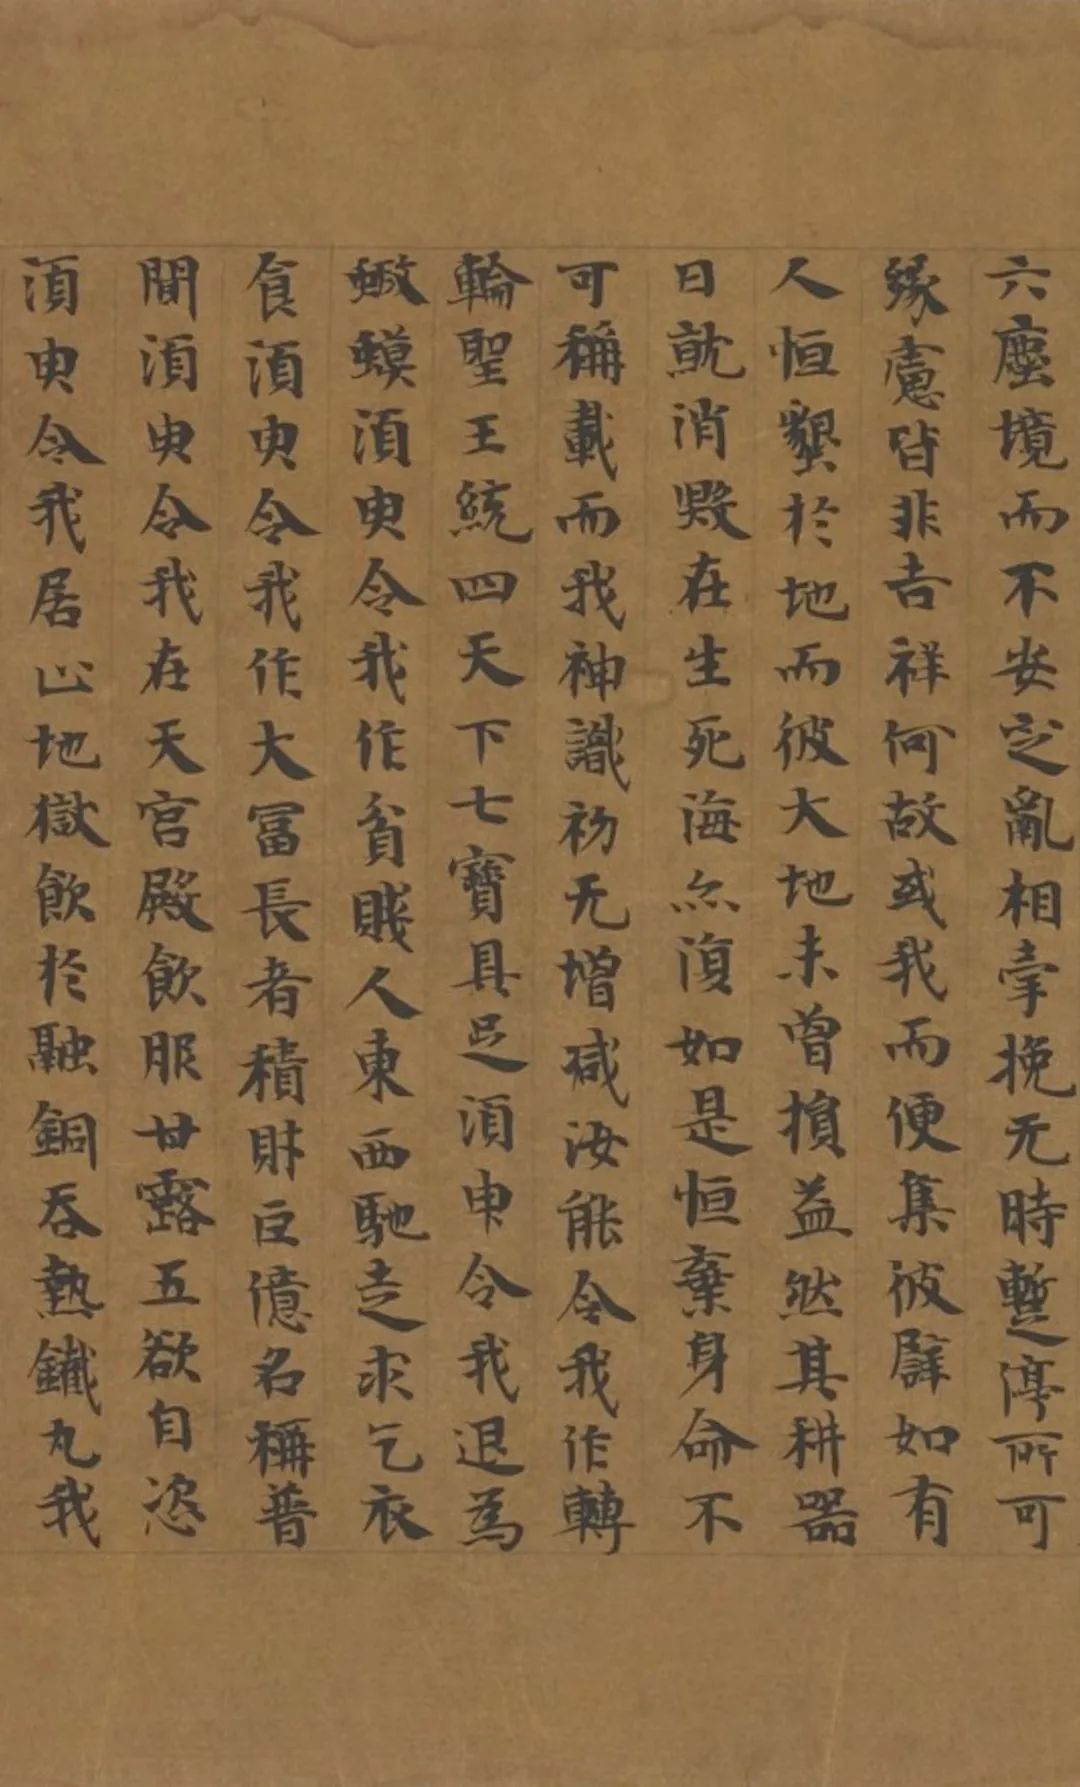 六塵境而不安定亂相牽挽无時蹔渟所可
緣慮皆非吉祥何故或我而便集彼譬如有
人恒墾於地而彼大地未曾損益然其耕器
日就消毀在生死海亦復如是恒棄身命不
可稱載而我神識初无增減汝能令我作轉
輪聖王統四天下七寶具足須臾令我退為
蝦蟆須臾令我作貧賤人東西馳走求乞衣
食須臾令我作大冨長者積財巨億名稱普
聞須臾令我在天宮殿飲服甘露五欲自恣
須臾令我居止地獄飲於融銅吞熱鐵丸我